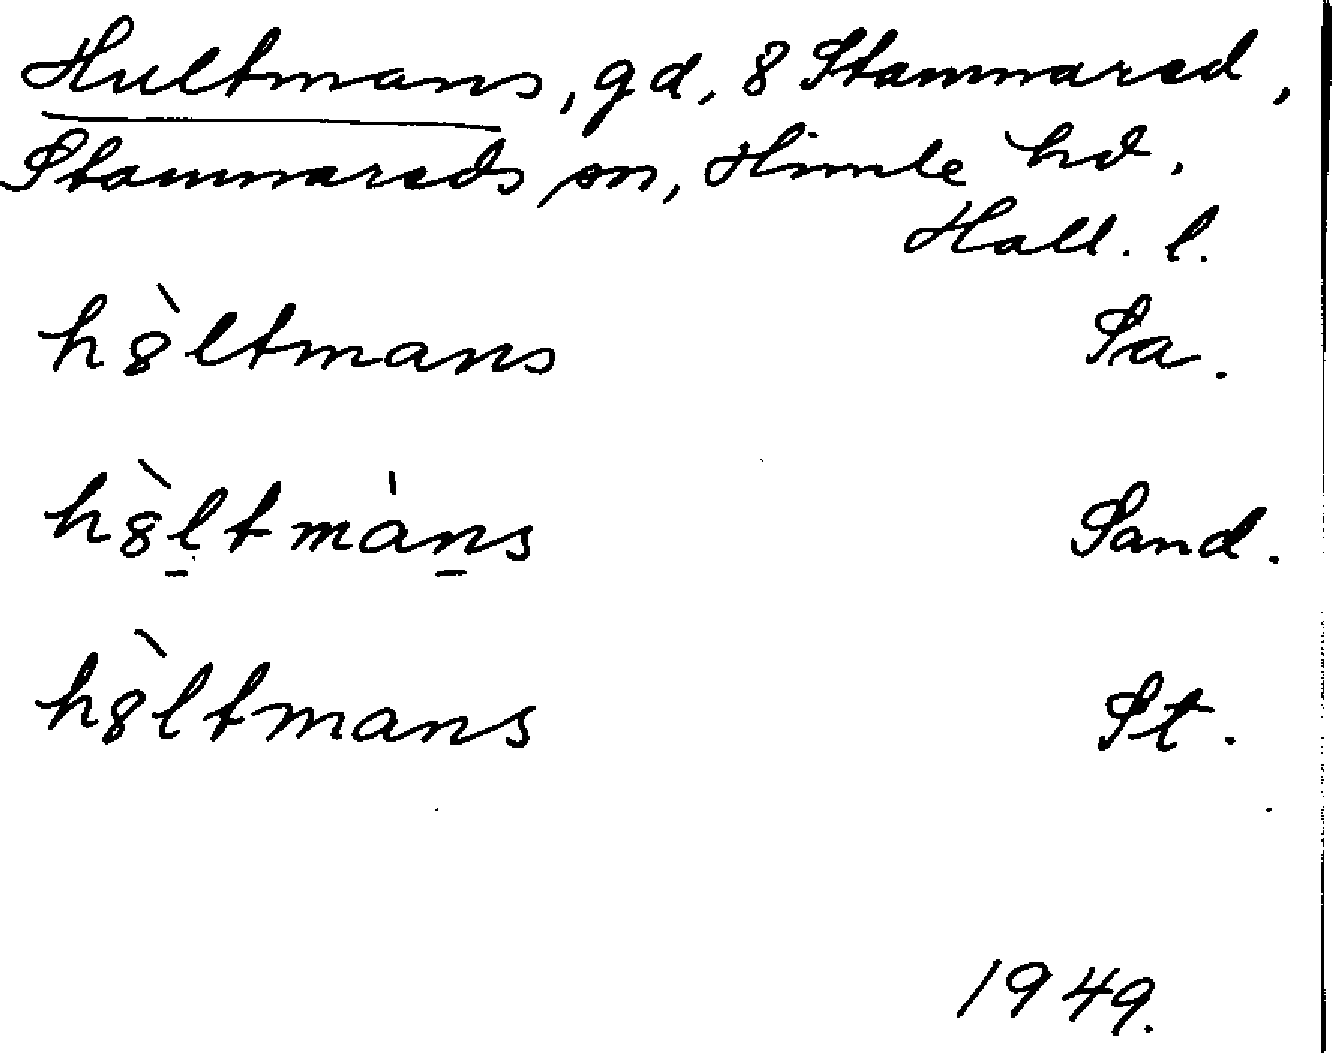 Hultmans, gd, 8 Stammared,
Stammareds sn, Himle hd.
Hall. l.
h8̀ltmans Sa.
h8̀l̠tmȧn̠s Sand.
h8̀ltmans St.
1949.